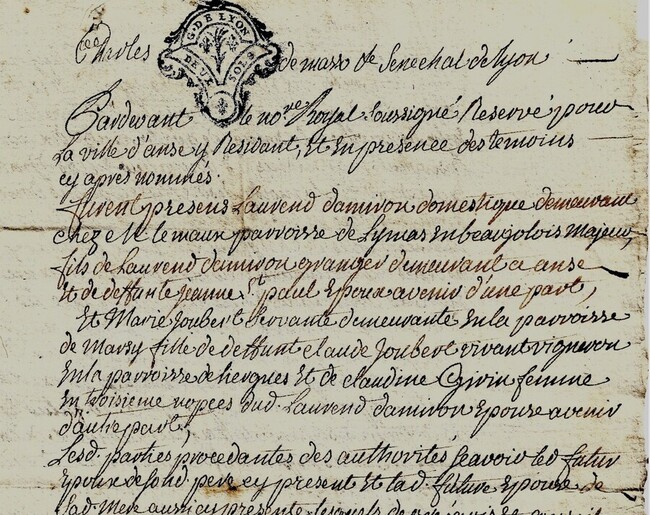 G. DE LYON
DEUX SOLS
de mars &c Senechal de Lyon
Pardevant le no.re Royal soussigné Reservé pour
La ville d'anse y Residant, Et En presence des temoins
cy après nommés.
furent presens Laurend damiron domestique demeurant
chez Mr le maux parroisse de Lymas En beaujolois Majeur,
fils de Laurend damiron granger demeurant a anse
Et de deffunte Jeanne st paul Epoux avenir d'une part,
Et Marie Joubert servante demeurante En la parroisse
de Marsy fille de deffunt claude Joubert vivant vigneron
En la parroisse de et de claudine femme
En troisieme nopces dud. Laurend damiron Epouse avenir
d'autre part,
Lesd. parties procedantes des authorités sçavoir led. futur
Epoux de sond. pere cy present Et lad. future Epouse de
sad. Mere aussy cy presente lesquels de gré